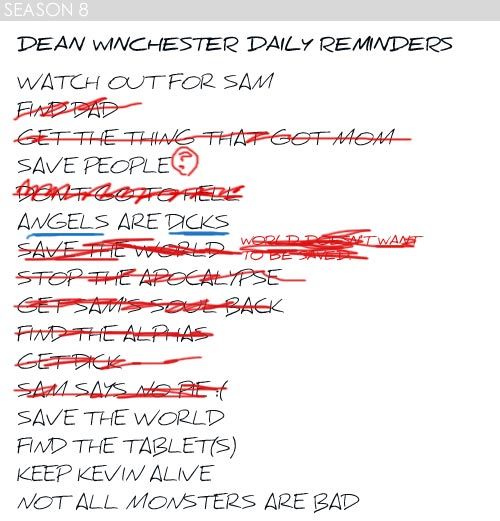 SEASON 8
DEAN WINCHESTER DAILY REMINDERS
WATCH OUT FOR SAM
FIND DAD
GET THE THING THAT GOT MOM
SAVE PEOPLE ?
DON'T GO TO HELL
ANGELS ARE DICKS
SAVE THE WORLD WORLD DOESN'T WANT
TO BE SAVED
STOP THE APOCALYPSE
GET SAM'S SOUL BACK
FIND THE ALPHAS
GET DICK
SAM SAYS NO PIE :(
SAVE THE WORLD
FIND THE TABLET(S)
KEEP KEVIN ALIVE
NOT ALL MONSTERS ARE BAD